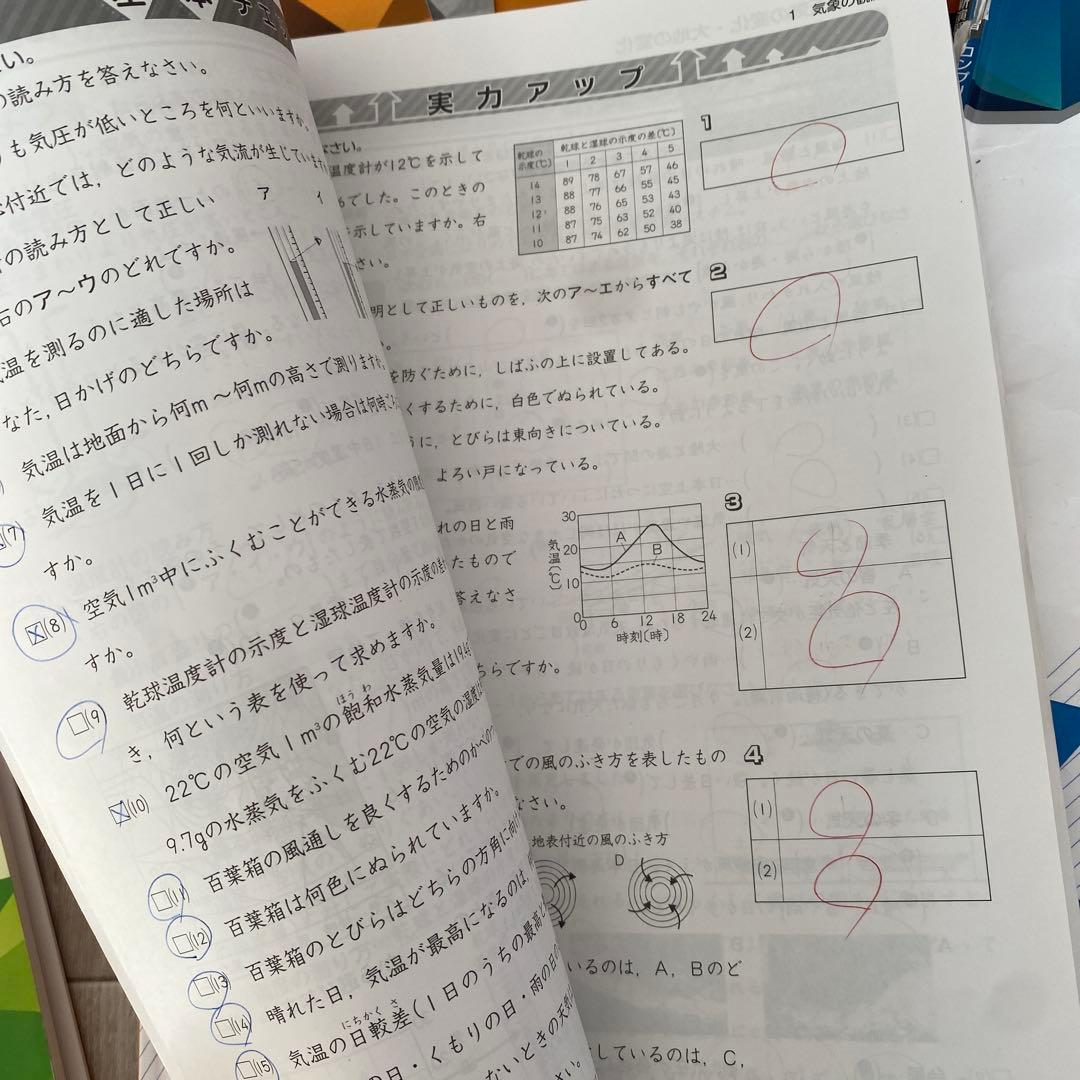 い。
の読み方を答えなさい。
も気圧が低いところを何といいますか。
付近では，どのような気流が生じていま
の読み方として正しい
右のア～ウのどれですか。
ア
イ
気温を測るのに適した場所は
なた，日かげのどちらですか。
気温は地面から何m～何mの高さで測りますか。
気温を1日に1回しか測れない場合は何時ごろ
(7)
すか。
空気1m³中にふくむことができる水蒸気の
(8)
すか。
乾球温度計の示度と湿球温度計の示度の差
(9)
き，何という表を使って求めますか。
22℃の空気1m³の飽和水蒸気量は19.4g
ほうわ
(10)
9.7gの水蒸気をふくむ22℃の空気の湿度は
百葉箱の風通しを良くするためのかべの
(11)
百葉箱は何色にぬられていますか。
(12)
百葉箱のとびらはどちらの方角に向け
(13)
晴れた日，気温が最高になるのは，
(14)
気温の日較差(1日のうちの最高
にちかくさ
(15)
の日・くもりの日・雨の日の
ないときの天気
1 気象の観
実力アップ
なさい。
温度計が12℃を示して
でした。このときの
を示していますか。右
さい。
乾球の示度(℃)
乾球と湿球の示度の差(℃)
1 2 3 4 5
14 89 78 67 57 46
13 88 77 66 55 45
12 88 76 65 53 43
11 87 75 63 52 40
10 87 74 62 50 38
1
明として正しいものを，次のア～エからすべて
2
を防ぐために，しばふの上に設置してある。
くするために，白色でぬられている。
うに，とびらは東向きについている。
よろい戸になっている。
れの日と雨
たもので
答えなさ
ちらですか。
気温(℃)
30
20
10
0
A
B
0 6 12 18 24
時刻(時)
3
(1)
(2)
での風のふき方を表したもの
なさい。
地表付近の風のふき方
D
4
(1)
(2)
いるのは，A，Bのど
しているのは，C，